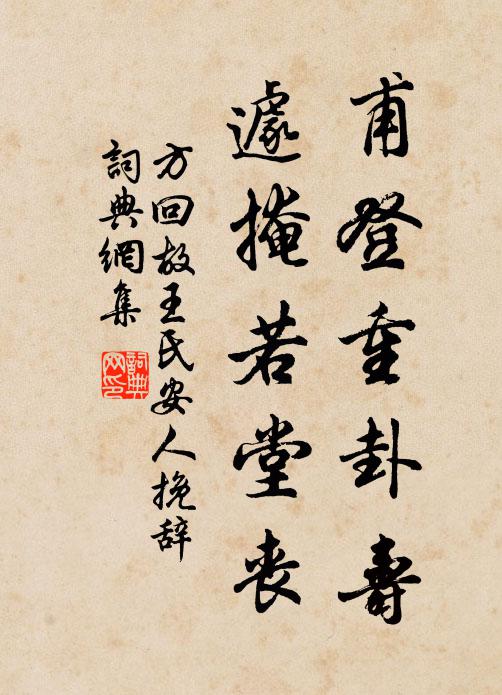 甫登重卦壽
遽掩若堂喪
方回故王氏安人挽辞
詞典網集
詞典网印